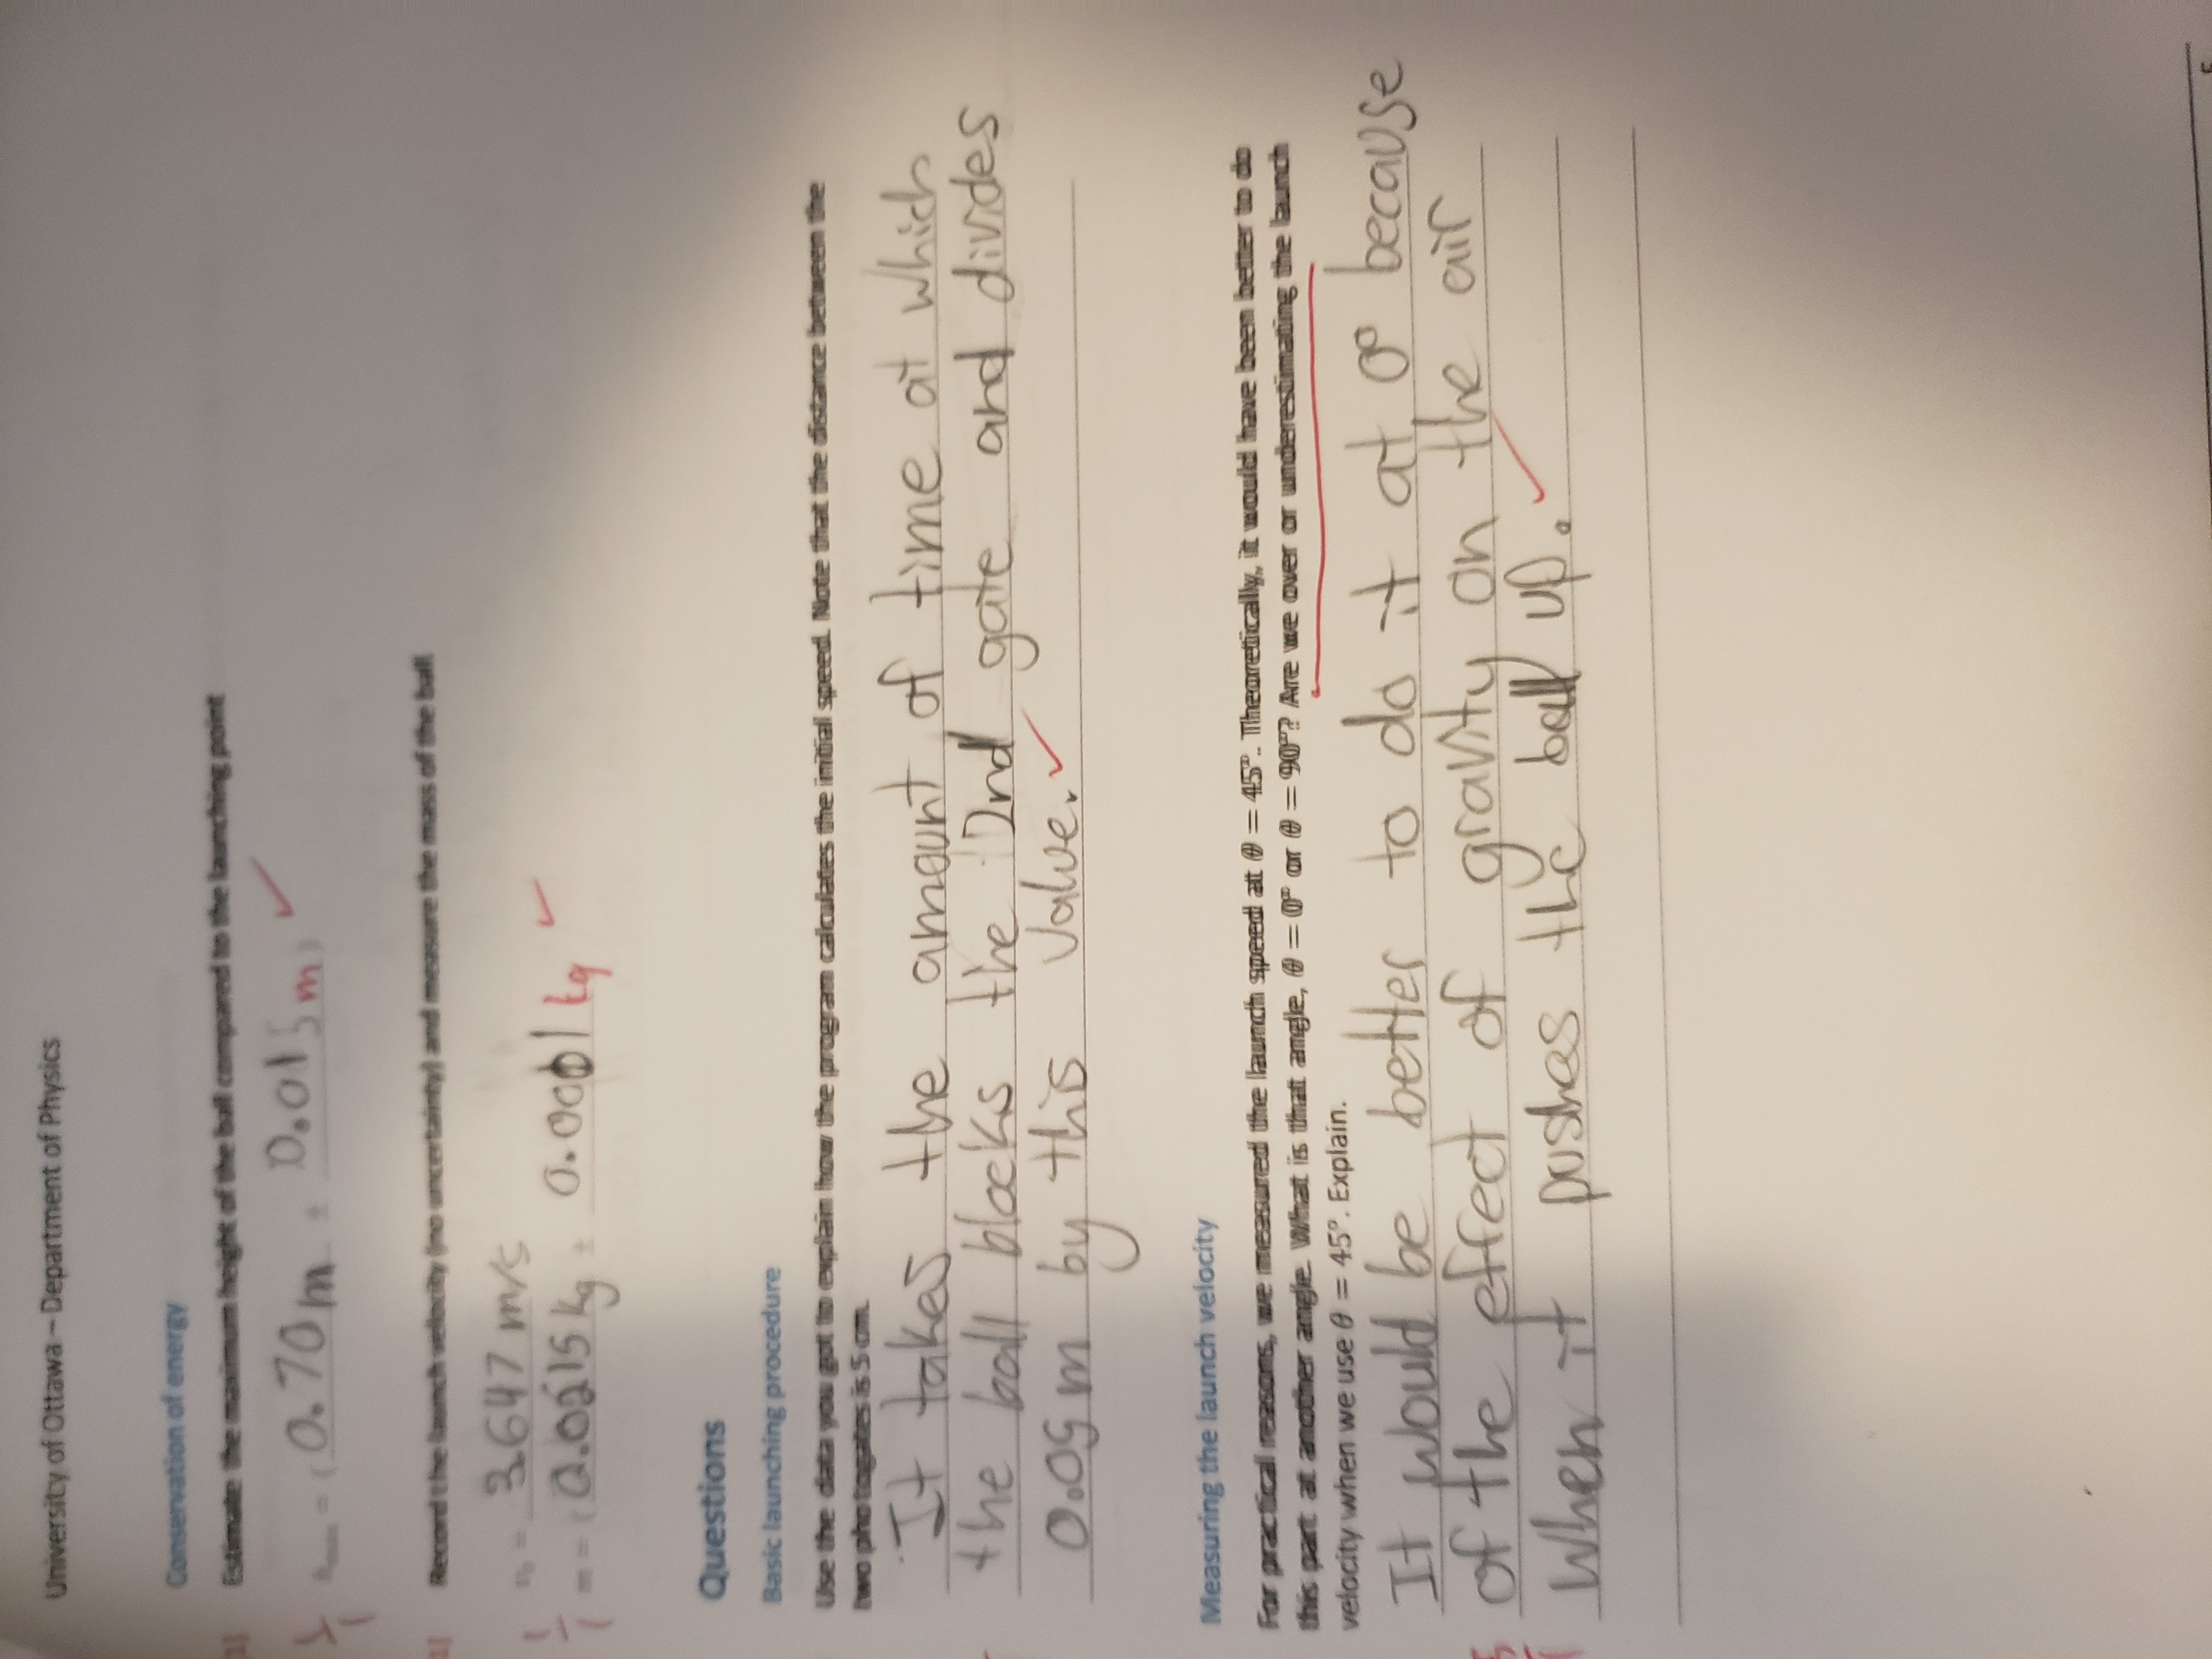 University of Ottawa – Department of Physics
Conservation of energy
[1] Estimate the maximum height of the ball compared to the launching point
1/1 = ( 0.70 m ± 0.015 m )
[1] Record the launch velocity (no uncertainty) and measure the mass of the ball.
= 3.647 m/s
1/1 m = ( 0.0215 kg ± 0.0001 kg
Questions
Basic launching procedure
Use the data you got to explain how the program calculates the initial speed. Note that the distance between the
two photogates is 5 cm.
It takes the amount of time at which
the ball blocks the 2nd gate and divides
0.05 m by this value.
Measuring the launch velocity
For practical reasons, we measured the launch speed at θ = 45°. Theoretically, it would have been better to do
this part at another angle. What is that angle, θ = 0° or θ = 90°? Are we over or underestimating the launch
velocity when we use θ = 45°. Explain.
It would be better to do it at 0° because
of the effect of gravity on the air
when it pushes the ball up.
5